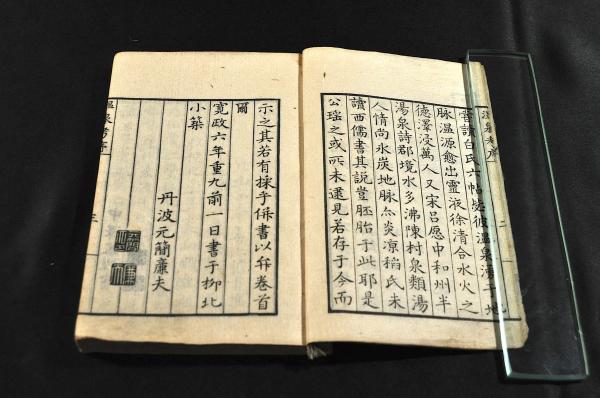 温泉考序 二
嘗讀白氏六帖彼温泉湧于地
脉温源愈出靈液徐清合水火之
德澤浸萬人又宋呂愿中和州半
湯泉詩郡境水多沸陳村泉類湯
人情尚氷炭地脉亦炎凉稻氏未
讀西儒書其說豈胚胎于此耶是
公瑤之或所未逮見若存于今而
示之其若有採乎併書以弁卷首
爾
寛政六年重九前一日書于柳北
小築
丹波元簡廉夫
温泉考序 三